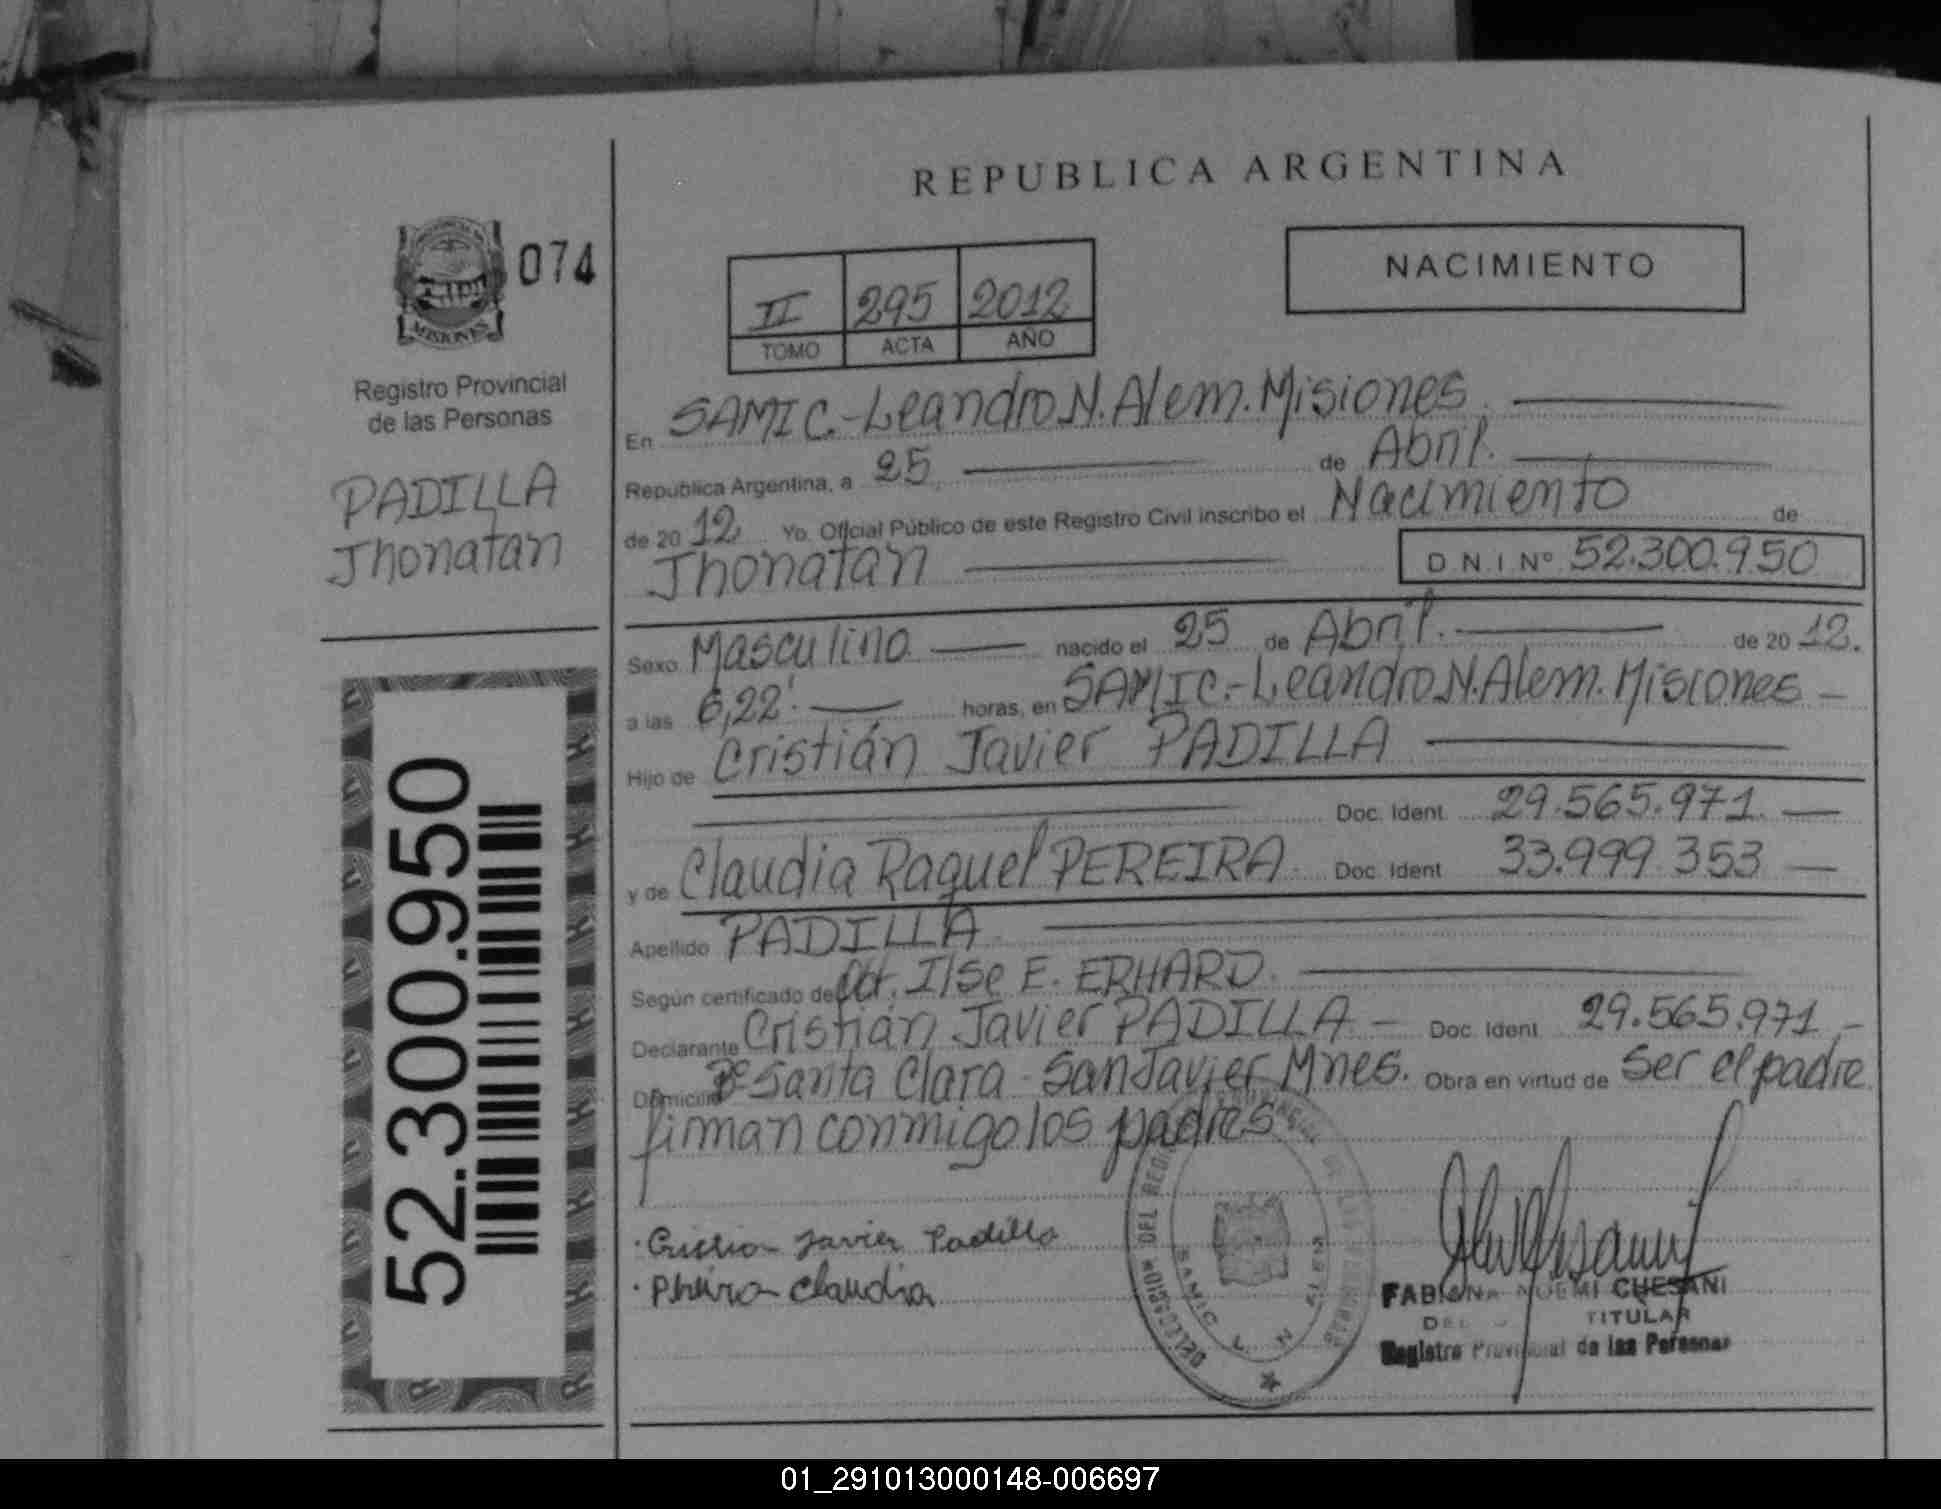 REPUBLICA ARGENTINA
074
MISIONES
Registro Provincial
de las Personas
PADILLA
Jhonatan
52.300.950
II 295 2012
TOMO ACTA AÑO
NACIMIENTO
En SAMIC.-Leandro N. Alem. Misiones.
Republica Argentina, a 25 de Abril.
de 20 12 Yo. Oficial Público de este Registro Civil inscribo el Nacimiento de
Jhonatan D.N.I Nº 52.300.950
Sexo Masculino nacido el 25 de Abril. de 20 12.
a las 6,22' horas, en SAMIC.-Leandro N. Alem. Misiones
Hijo de Cristián Javier PADILLA
Doc. Ident. 29.565.971.
y de Claudia Raquel PEREIRA Doc. Ident 33.999.353
Apellido PADILLA
Según certificado de Ilse E. ERHARD.
Declarante Cristián Javier PADILLA - Doc. Ident 29.565.971
Domicilio Bº Santa Clara - San Javier Mnes. Obra en virtud de Ser el padre
firman conmigo los padres
Javier Padilla
Claudia
SAMIC L. N. ALEM
FABIANA NOEMI CHESANI
TITULAR
Registro Provincial de las Personas
01_291013000148-006697